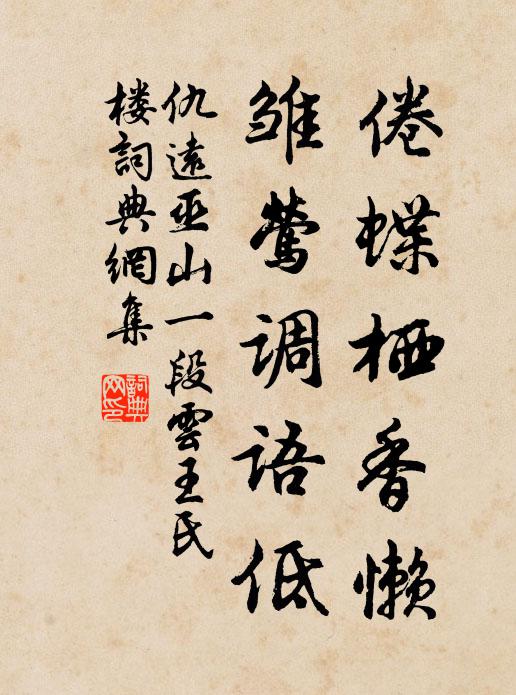 倦蝶栖香懒
雏莺调语低
仇遠巫山一段雲王氏
楼詞典網集
詞典
网印